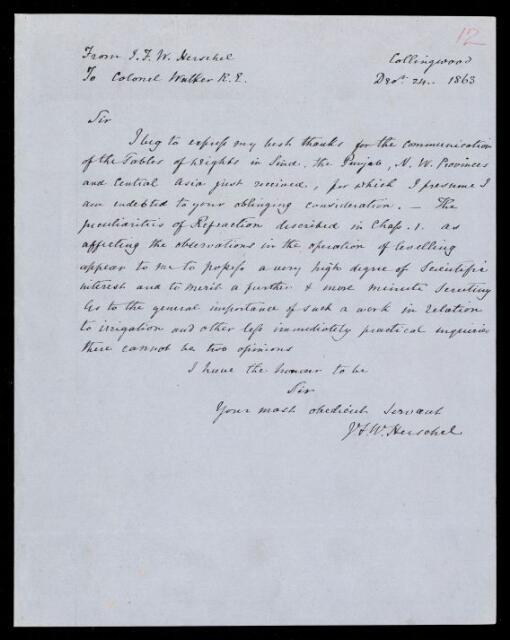 12
From J. F. W. Herschel
Collingwood
To Colonel Walker R. E.
Dec. 24. 1863
Sir
I beg to express my best thanks for the communication
of the Tables of heights in Sind, the Punjab, N. W. Provinces
and Central Asia just received, for which I presume I
am indebted to your obliging consideration. — The
peculiarities of Refraction described in Chap. 1. as
affecting the observations in the operation of levelling
appear to me to possess a very high degree of Scientific
interest and to merit a further & more minute Scrutiny
As to the general importance of such a work in relation
to irrigation and other less immediately practical inquiries
there cannot be two opinions
I have the honour to be
Sir
Your most obedient Servant
J F W. Herschel